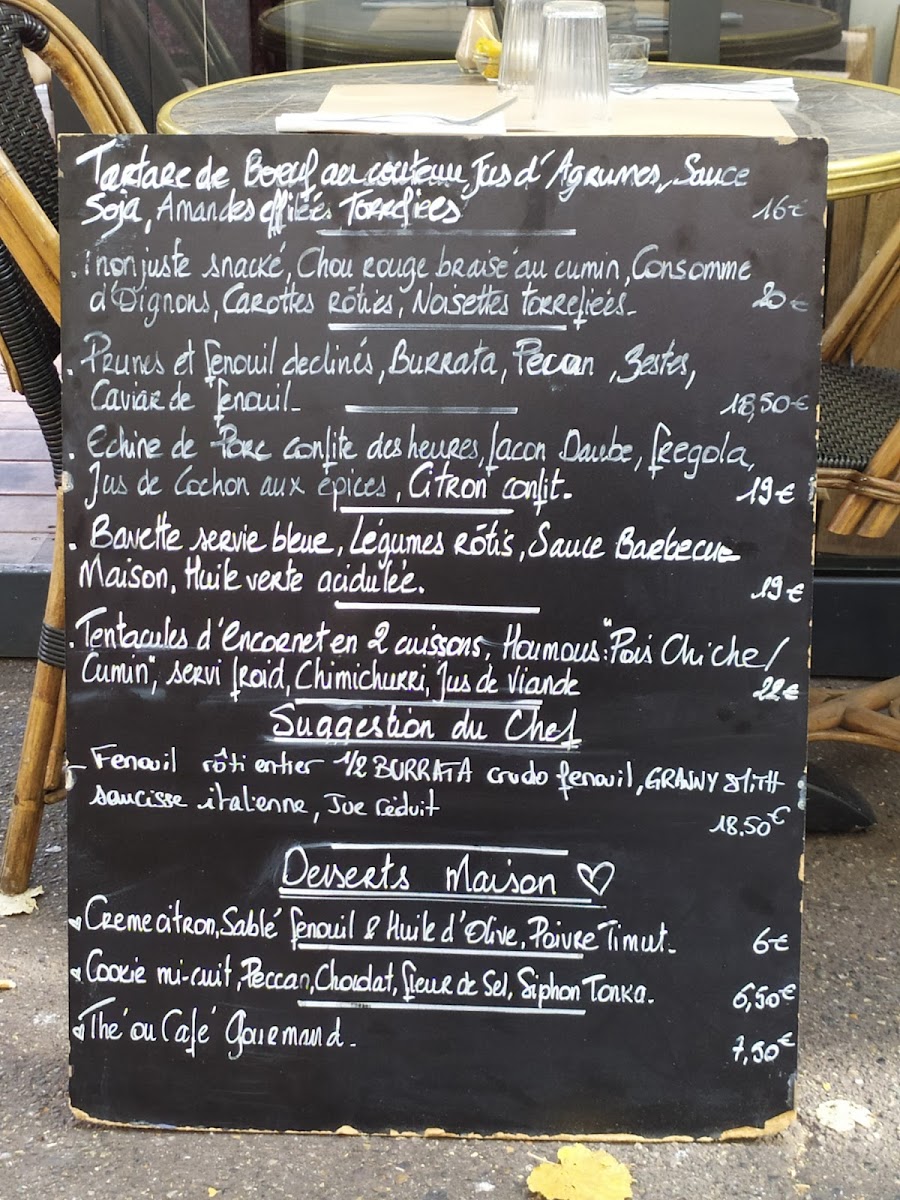 Tartare de Boeuf au couteau, Jus d'Agrumes, Sauce
Soja, Amandes effilées Torréfiées 16€
. Thon juste snacké, Chou rouge braisé au cumin, Consomme
d'Oignons, Carottes rôties, Noisettes torrefiées. 20€
. Prunes et fenouil declinés, Burrata, Pecan, Zestes,
Caviar de fenouil. 18,50€
. Echine de Porc confite des heures, facon Daube, fregola,
Jus de Cochon aux épices, Citron confit. 19€
. Bavette servie bleue, Légumes Rôtis, Sauce Barbecue
Maison, Huile verte acidulée. 19€
. Tentacules d'Encornet en 2 cuissons, Houmous "Pois Chiche/
Cumin", servi froid, Chimichurri, Jus de Viande 22€
Suggestion du Chef
- Fenouil rôti entier 1/2 BURRATA crudo fenouil, GRANNY SMITH
saucisse italienne, Jus réduit 18.50€
Desserts Maison ♡
Creme citron, Sablé fenouil & Huile d'Olive, Poivre Timut. 6€
Cookie mi-cuit, Peccan, Chocolat, fleur de Sel, Siphon Tonka. 6,50€
Thé ou Café Gourmand. 7,50€